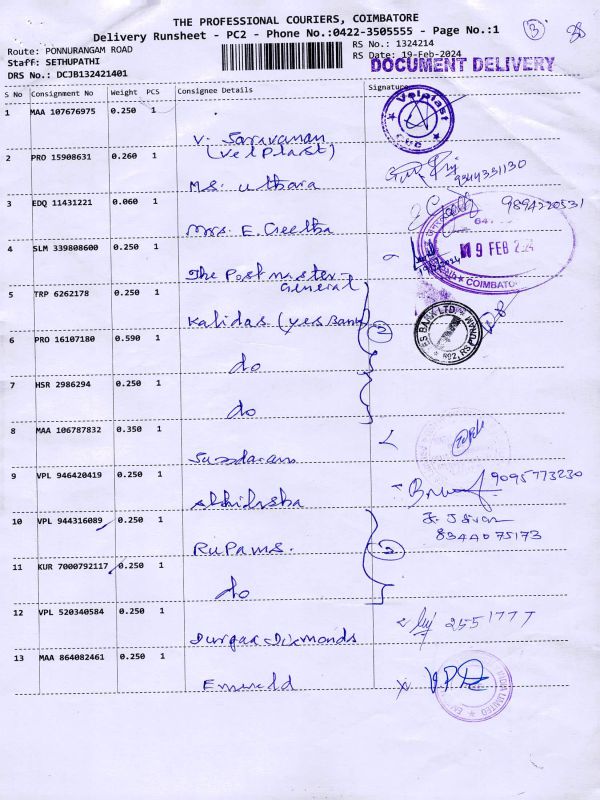 THE PROFESSIONAL COURIERS, COIMBATORE
Delivery Runsheet - PC2 - Phone No.:0422-3505555 - Page No.:1
3
Route: PONNURANGAM ROAD
RS No.: 1324214
Staff: SETHUPATHI
RS Date: 19-Feb-2024
DRS No.: DCJB132421401
DOCUMENT DELIVERY
S No Consignment No Weight PCS Consignee Details Signature
1 MAA 107676975 0.250 1
Velplast
V. Saravanan
(Velplast)
2 PRO 15908631 0.260 1
9344331130
Ms. Uthara
3 EDQ 11431221 0.060 1
9894220531
Mrs. E. Geetha
4 SLM 339808600 0.250 1
19 FEB 2024
COIMBATOR
The Postmaster
General
5 TRP 6262178 0.250 1
Kalidas (yes Bank)
YES BANK LTD
6 PRO 16107180 0.590 1
do
7 HSR 2986294 0.250 1
do
8 MAA 106787832 0.350 1
Sundaram
9 VPL 946420419 0.250 1
9095773230
Abhilasha
10 VPL 944316089 0.250 1
8344075173
Rupams.
11 KUR 7000792117 0.250 1
do
12 VPL 520340584 0.250 1
2551777
Durgaa Diamonds
13 MAA 864082461 0.250 1
Emerald